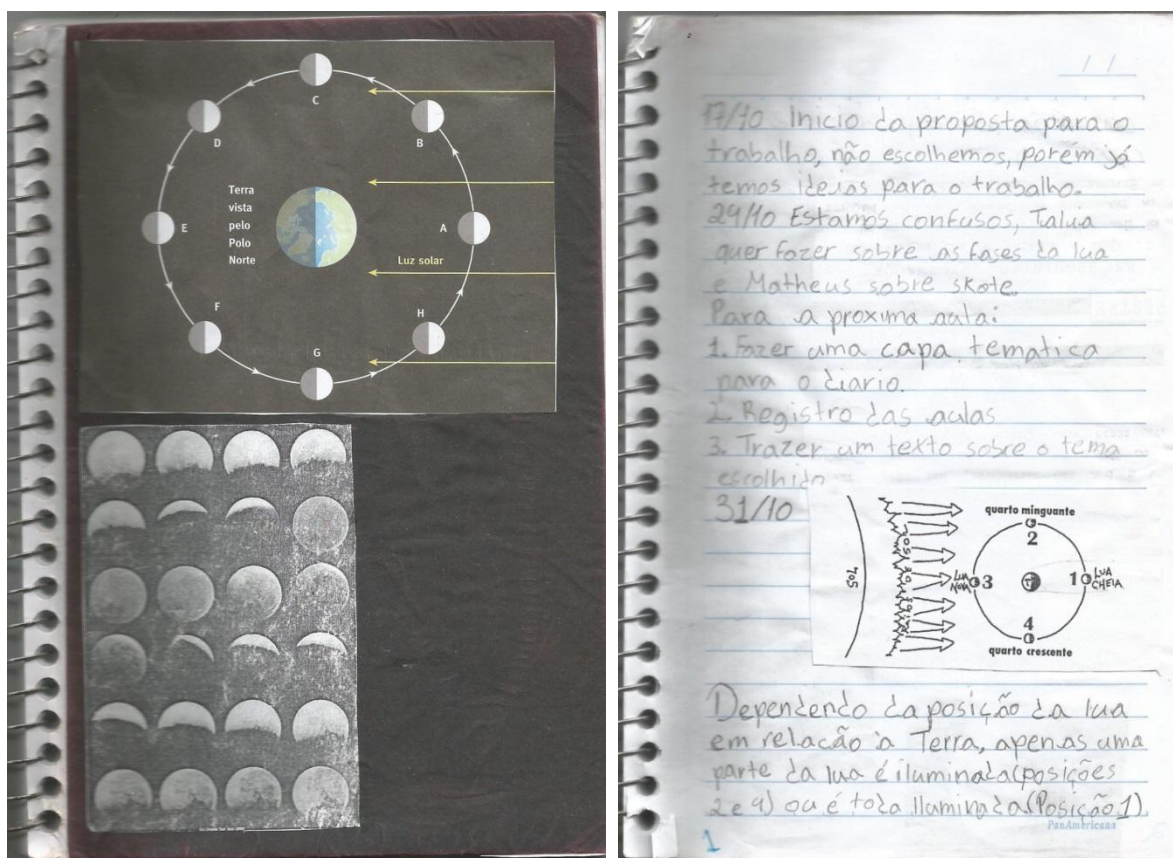 C
D
B
Terra
vista
pelo
Polo
Norte
E
A
Luz solar
F
H
G
/ /
17/10 Inicio da proposta para o
trabalho, não escolhemos, porém já
temos ideias para o trabalho.
24/10 Estamos confusos, Talua
quer fazer sobre as fases da lua
e Matheus sobre skate.
Para a proxima aula:
1. Fazer uma capa tematica
para o diario.
2. Registro das aulas
3. Trazer um texto sobre o tema
escolhido
31/10
quarto minguante
2
SOL
RAIOS DO SOL
LUA NOVA
3
T
1
LUA CHEIA
4
quarto crescente
Dependendo da posição da lua
em relação à Terra, apenas uma
parte da lua é iluminada (posições
2 e 4) ou é toda iluminada (Posição 1)
PanAmericana
1